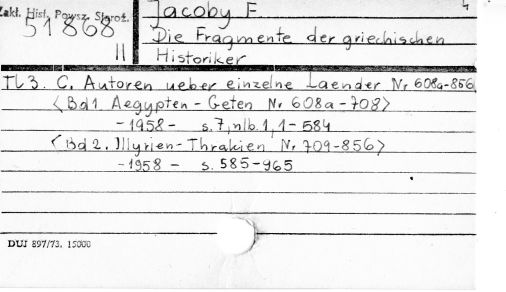 Zakł. Hist. Powsz. Staroż.
51868
II
Jacoby F.
4
Die Fragmente der griechischen
Historiker
Tl 3. C. Autoren ueber einzelne Laender Nr 608a-856
<Bd 1. Aegypten - Geten Nr 608a-708>
-1958- s. 7, nlb. 1, 1-584
<Bd 2. Illyrien-Thrakien Nr 709-856>
-1958- s. 585-965
DUJ 897/73. 15000